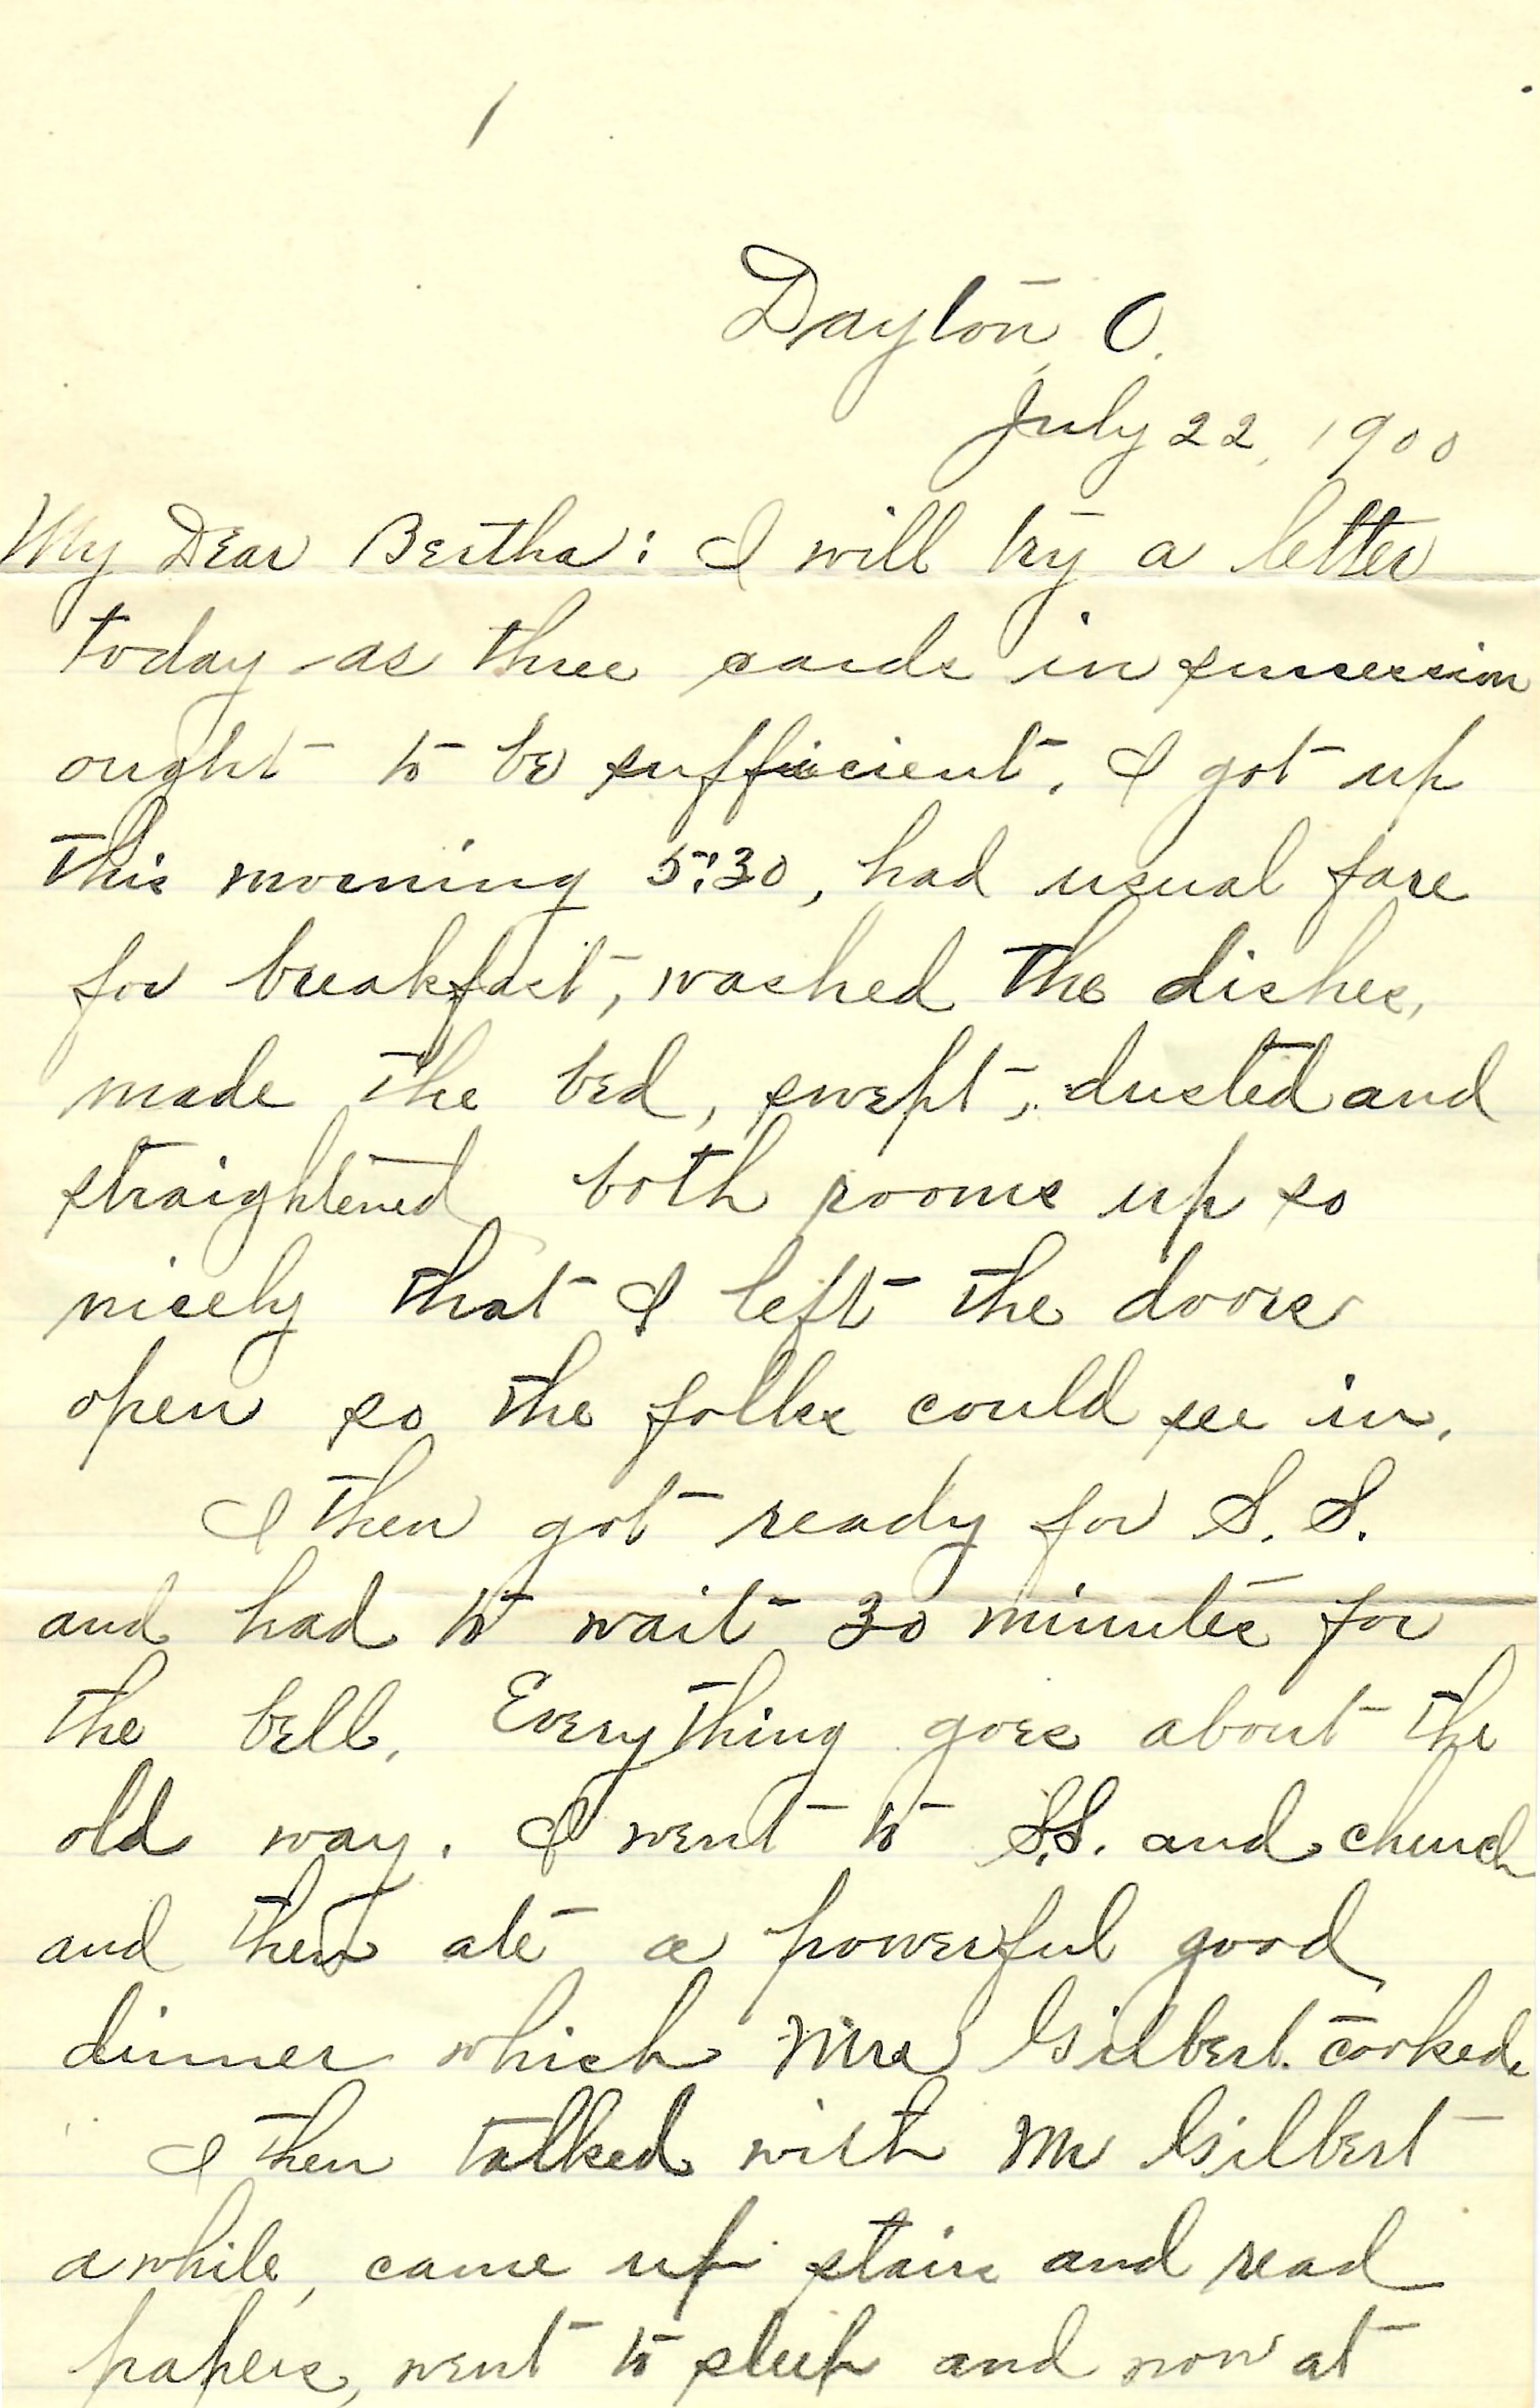 1
Dayton, O.
July 22, 1900
My Dear Bertha: I will try a letter
today as three cards in succession
ought to be sufficient. I got up
this morning 5:30, had usual fare
for breakfast, washed the dishes,
made the bed, swept, dusted and
straightened both rooms up so
nicely that I left the doors
open so the folks could see in.
I then got ready for S. S.
and had to wait 30 minutes for
the bell. Everything goes about the
old way. I went to S.S. and church
and then ate a powerful good
dinner which Mrs Gilbert cooked.
I then talked with Mr Gilbert
awhile, came up stairs and read
papers, went to sleep and now at